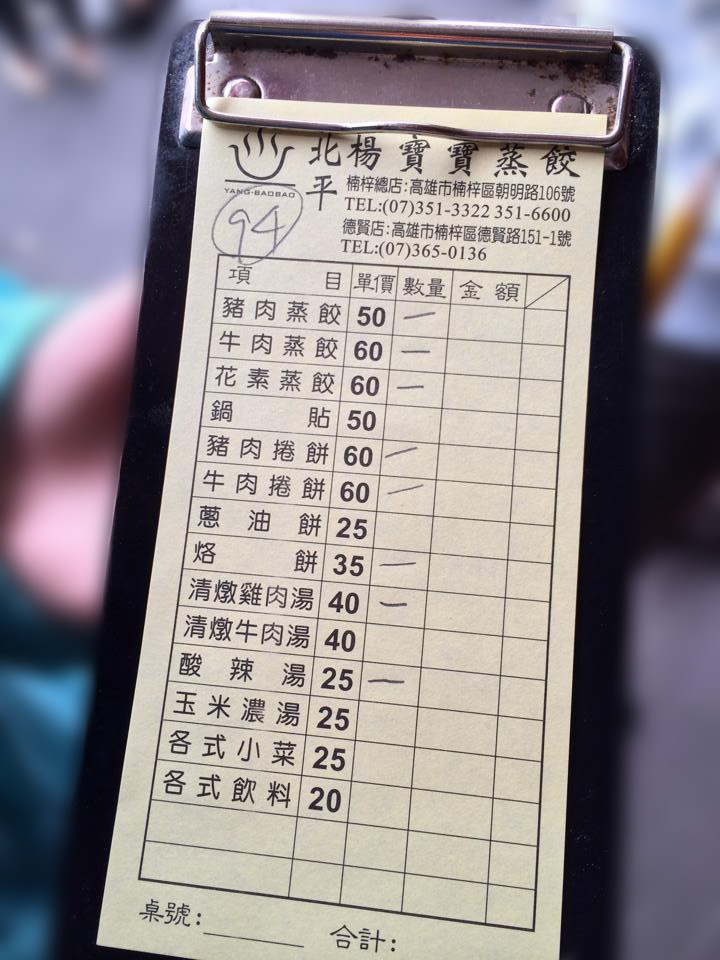 北平 楊寶寶蒸餃
YANG-BAOBAO
楠梓總店:高雄市楠梓區朝明路106號
TEL:(07)351-3322 351-6600
德賢店:高雄市楠梓區德賢路151-1號
TEL:(07)365-0136
94
項目 單價 數量 金額
豬肉蒸餃 50 一
牛肉蒸餃 60 一
花素蒸餃 60 一
鍋貼 50
豬肉捲餅 60 一
牛肉捲餅 60 一
蔥油餅 25
烙餅 35 一
清燉雞肉湯 40 一
清燉牛肉湯 40
酸辣湯 25 一
玉米濃湯 25
各式小菜 25
各式飲料 20
桌號: 合計: